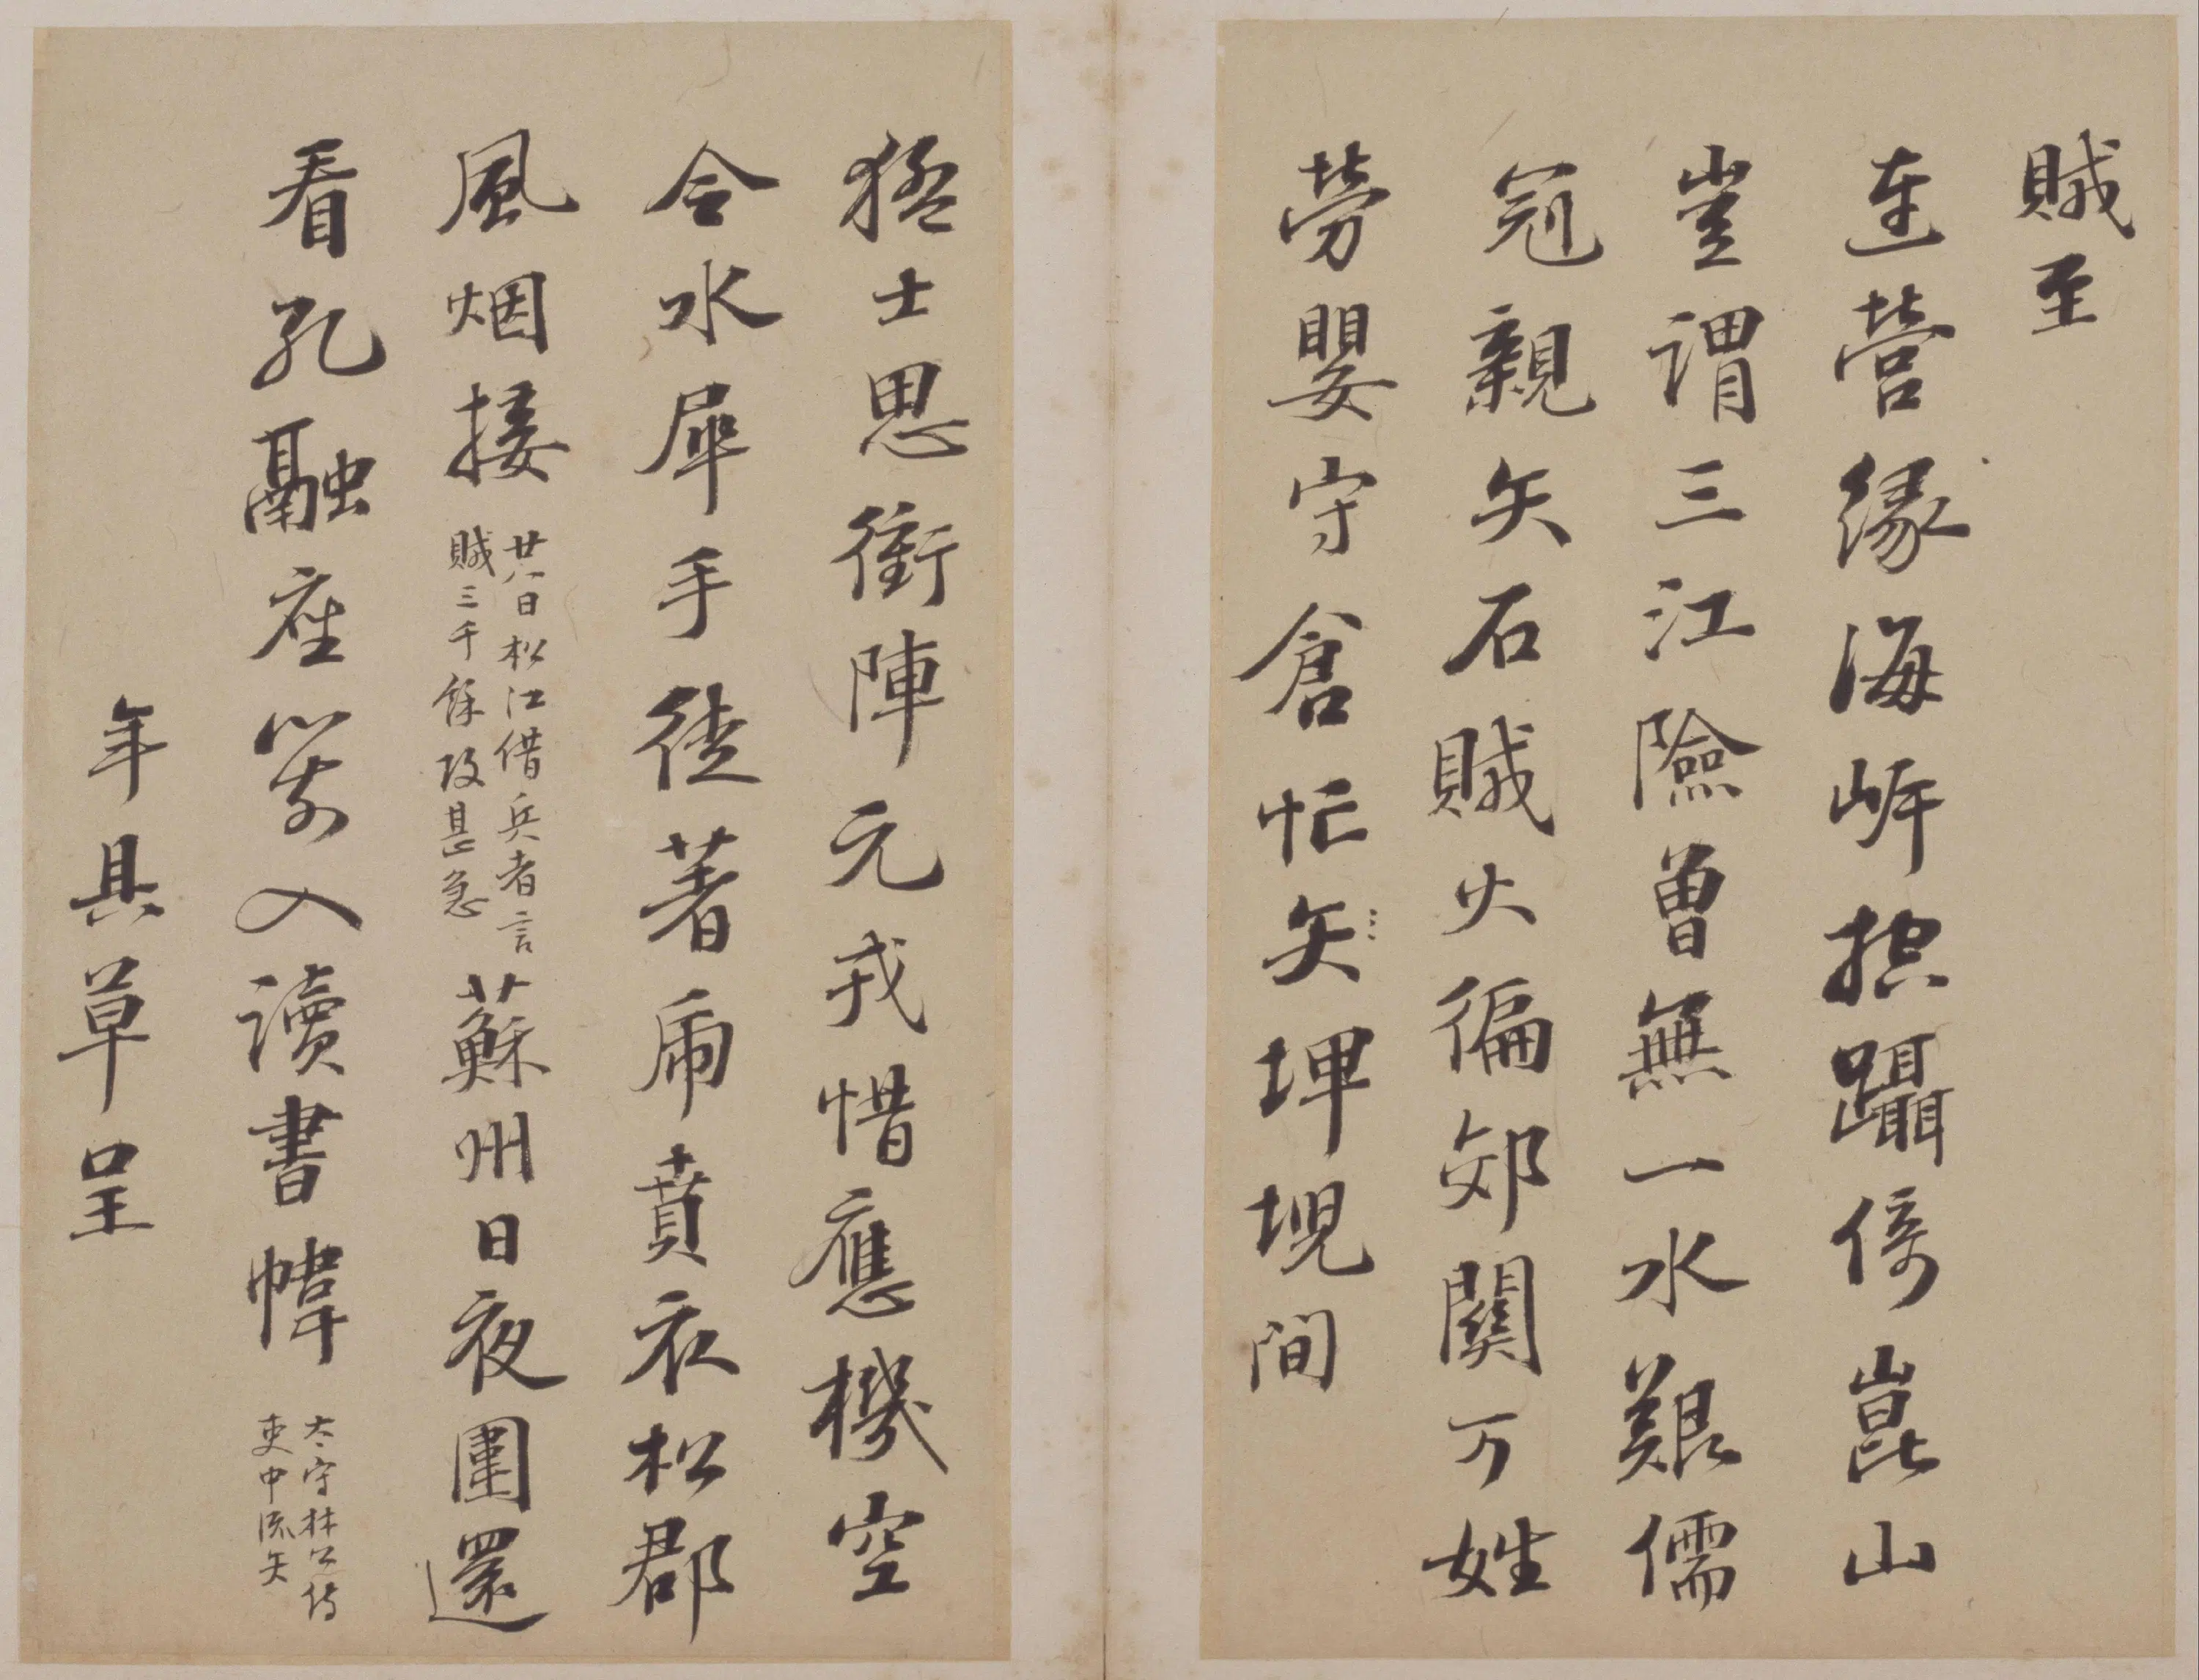 賊至
連營緣海岍捴躡倚崑山
豈謂三江險曾無一水艱儒
冠親矢石賊火徧郊關万姓
勞嬰守倉忙矣埤堄間
猛士思衝陣元戎惜應機空
令水犀手徒著虎賁衣松郡
風烟接
廿八日松江借兵者言
賊三千餘攻甚急
蘇州日夜圍還
看孔融座箭入讀書幃
太守林公侍
吏中流矢
年具草呈